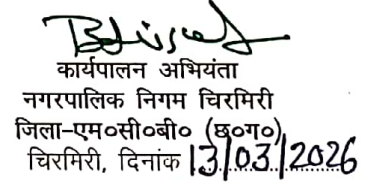 कार्यपालन अभियंता
नगरपालिक निगम चिरमिरी
जिला-एम०सी०बी० (छ०ग०)
चिरमिरी, दिनांक 13/03/2026